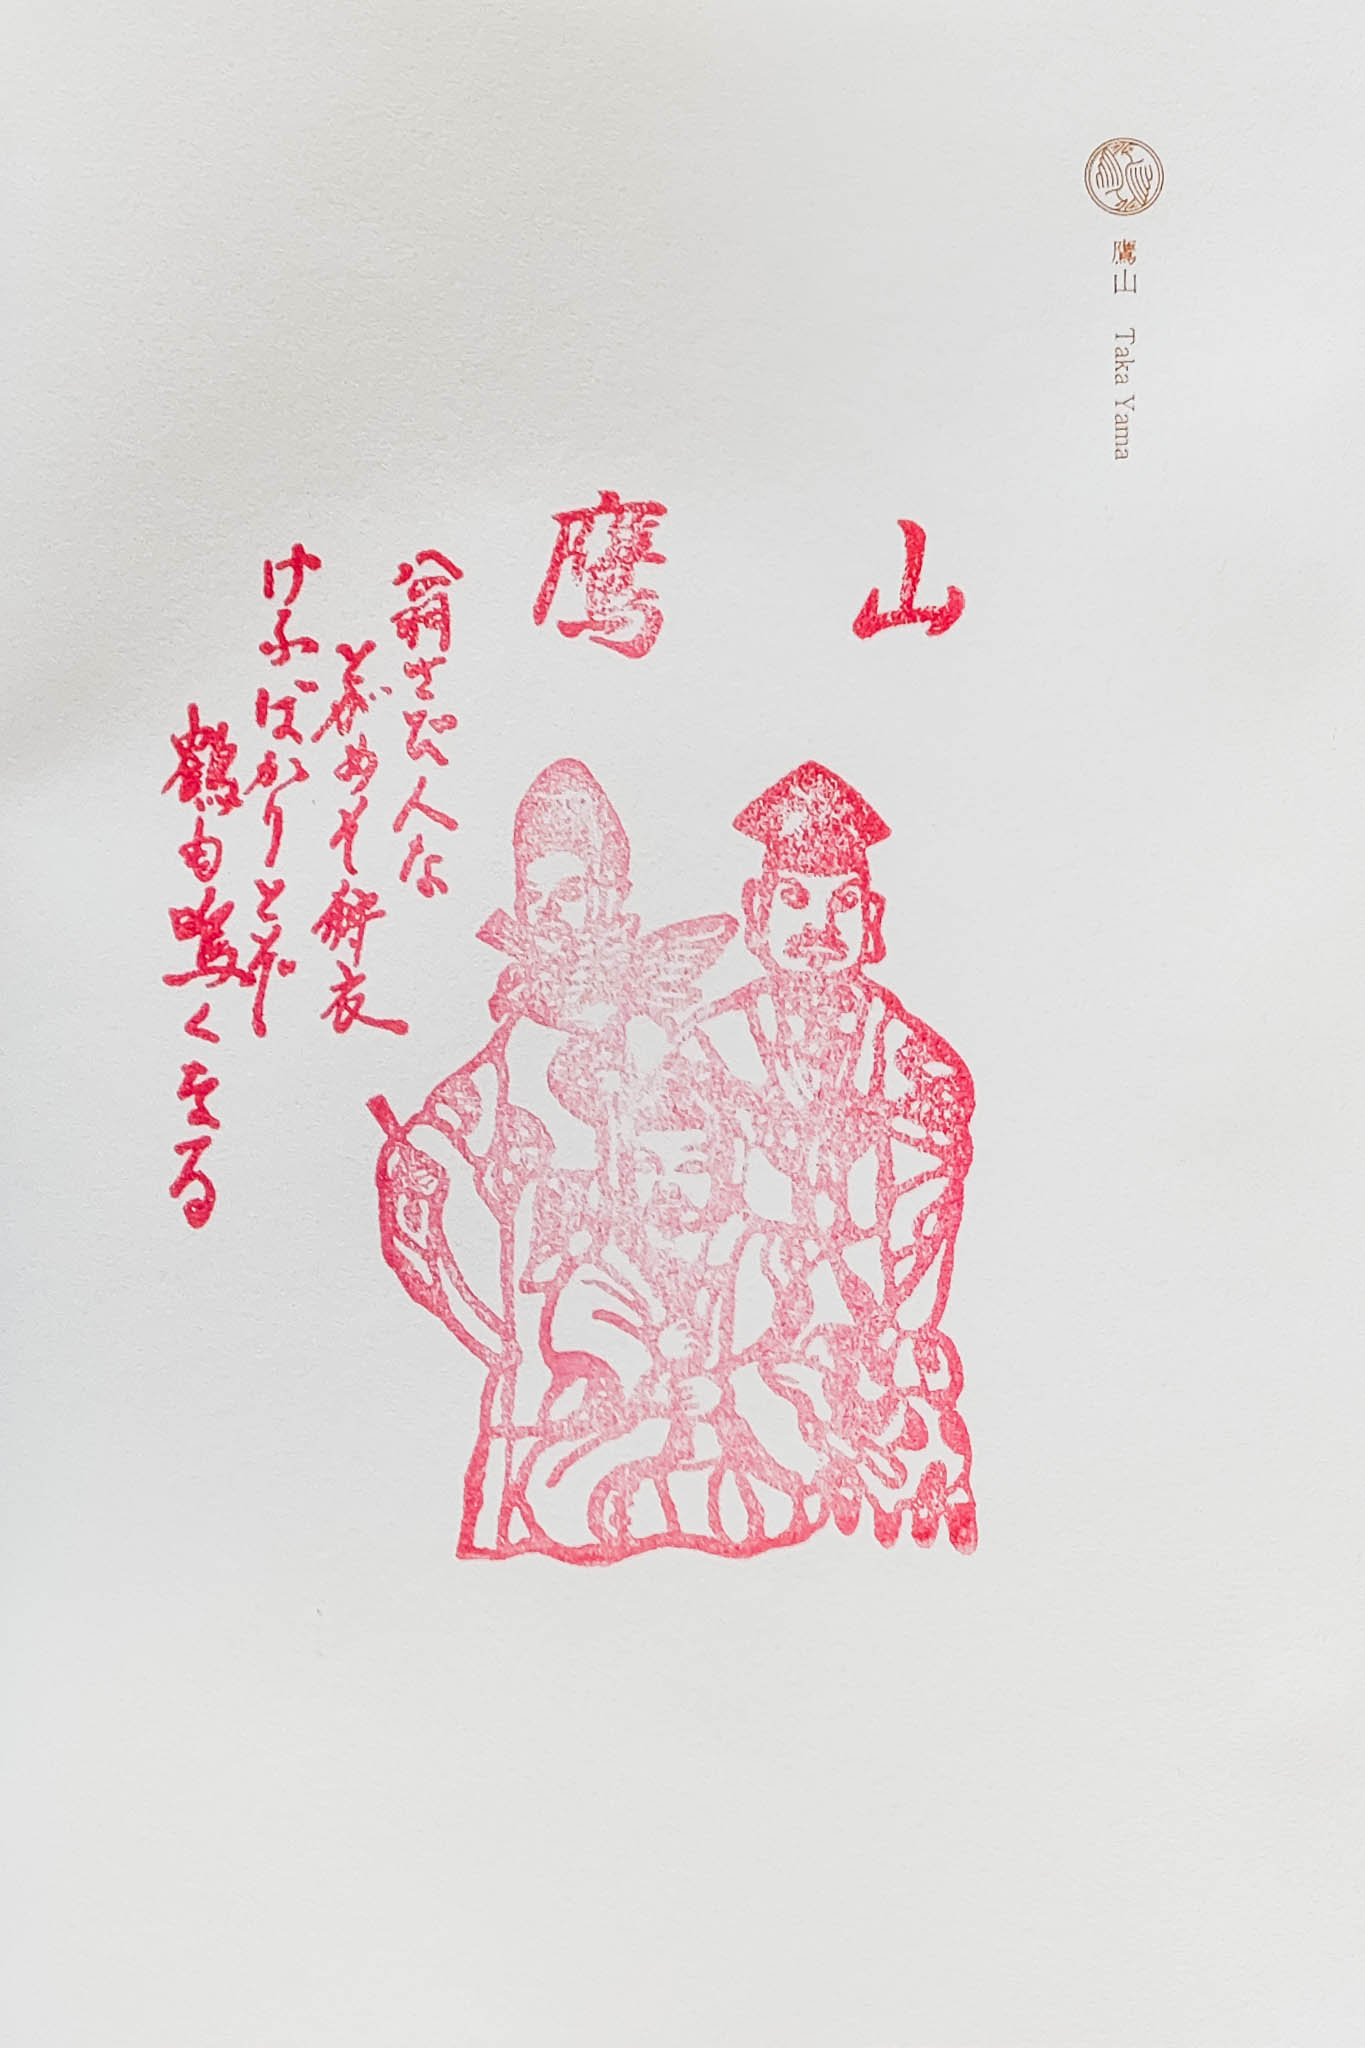 鷹山 Taka Yama
鷹山
翁さび人な
とがめそ狩衣
けふばかりとぞ
鶴も鳴くなる